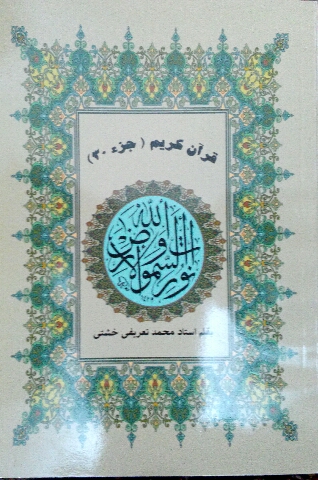 قرآن کریم ( جزء ۳۰)
الله نور السموات والارض
بقلم استاد محمد تعریفی خشتی